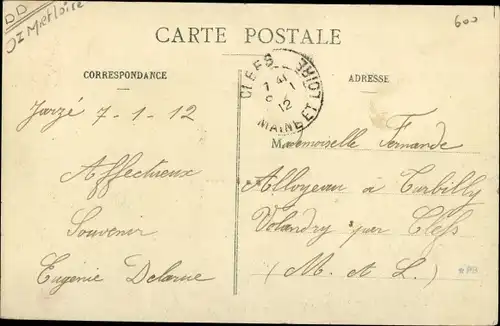 CARTE POSTALE
600
CORRESPONDANCE
ADRESSE
CLEFS
7 1
12
MAINE ET LOIRE
Jarzé 7-1-12
Affectueux
Souvenir
Eugénie Delarue
Mademoiselle Fernande
Alloyeau à Turbilly
Volandry par Clefs
(M. et L.)